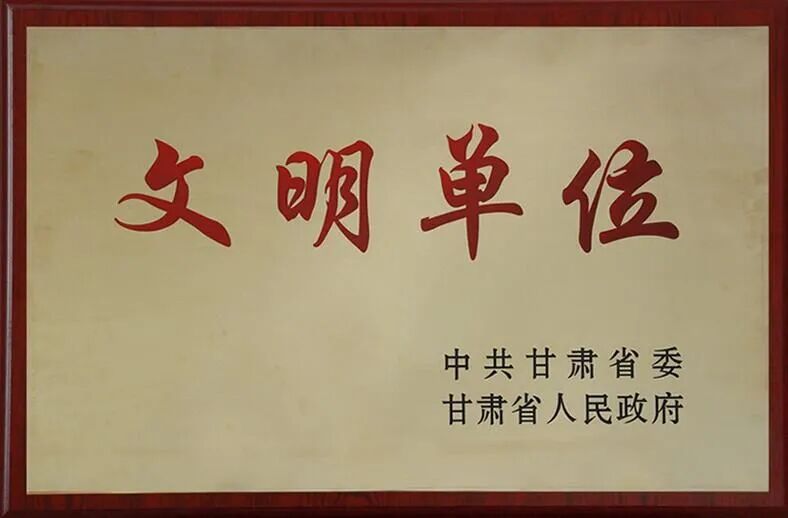 文明单位
中共甘肃省委
甘肃省人民政府